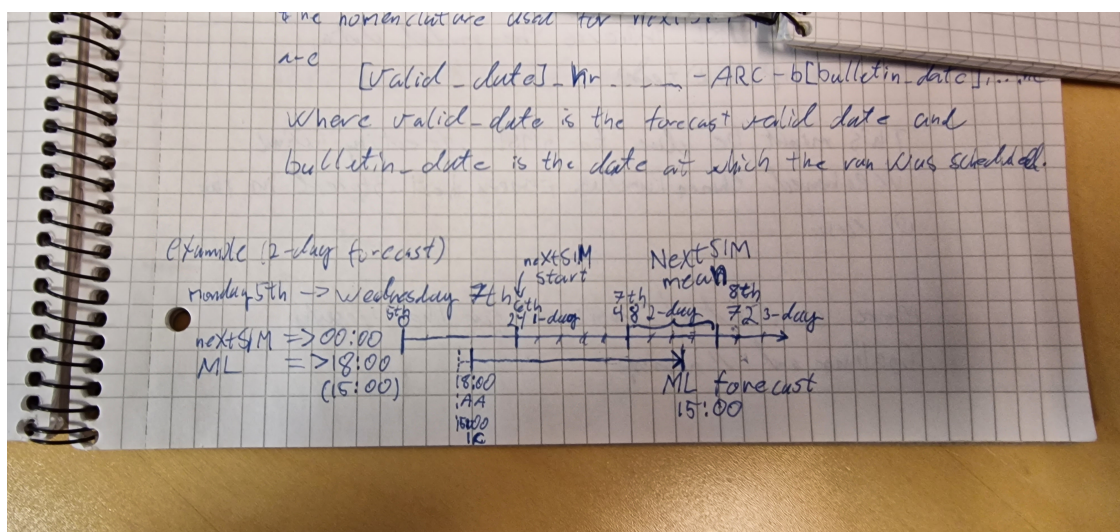 the nomenclature used for nextsim
[valid_date]_hr_ _ _ - ARC - b[bulletin_date]....nc
Where valid-date is the forecast valid date and
bulletin_date is the date at which the run was scheduled.
example (2-day forecast)
neXtSIM
start
NextSIM
mean
Monday 5th -> Wednesday 7th
5th
6th
24 1-day
7th
48 2-day
8th
72 3-day
neXtSIM => 00:00
ML => 18:00
(15:00)
18:00
AA
15:00
ML forecast
15:00